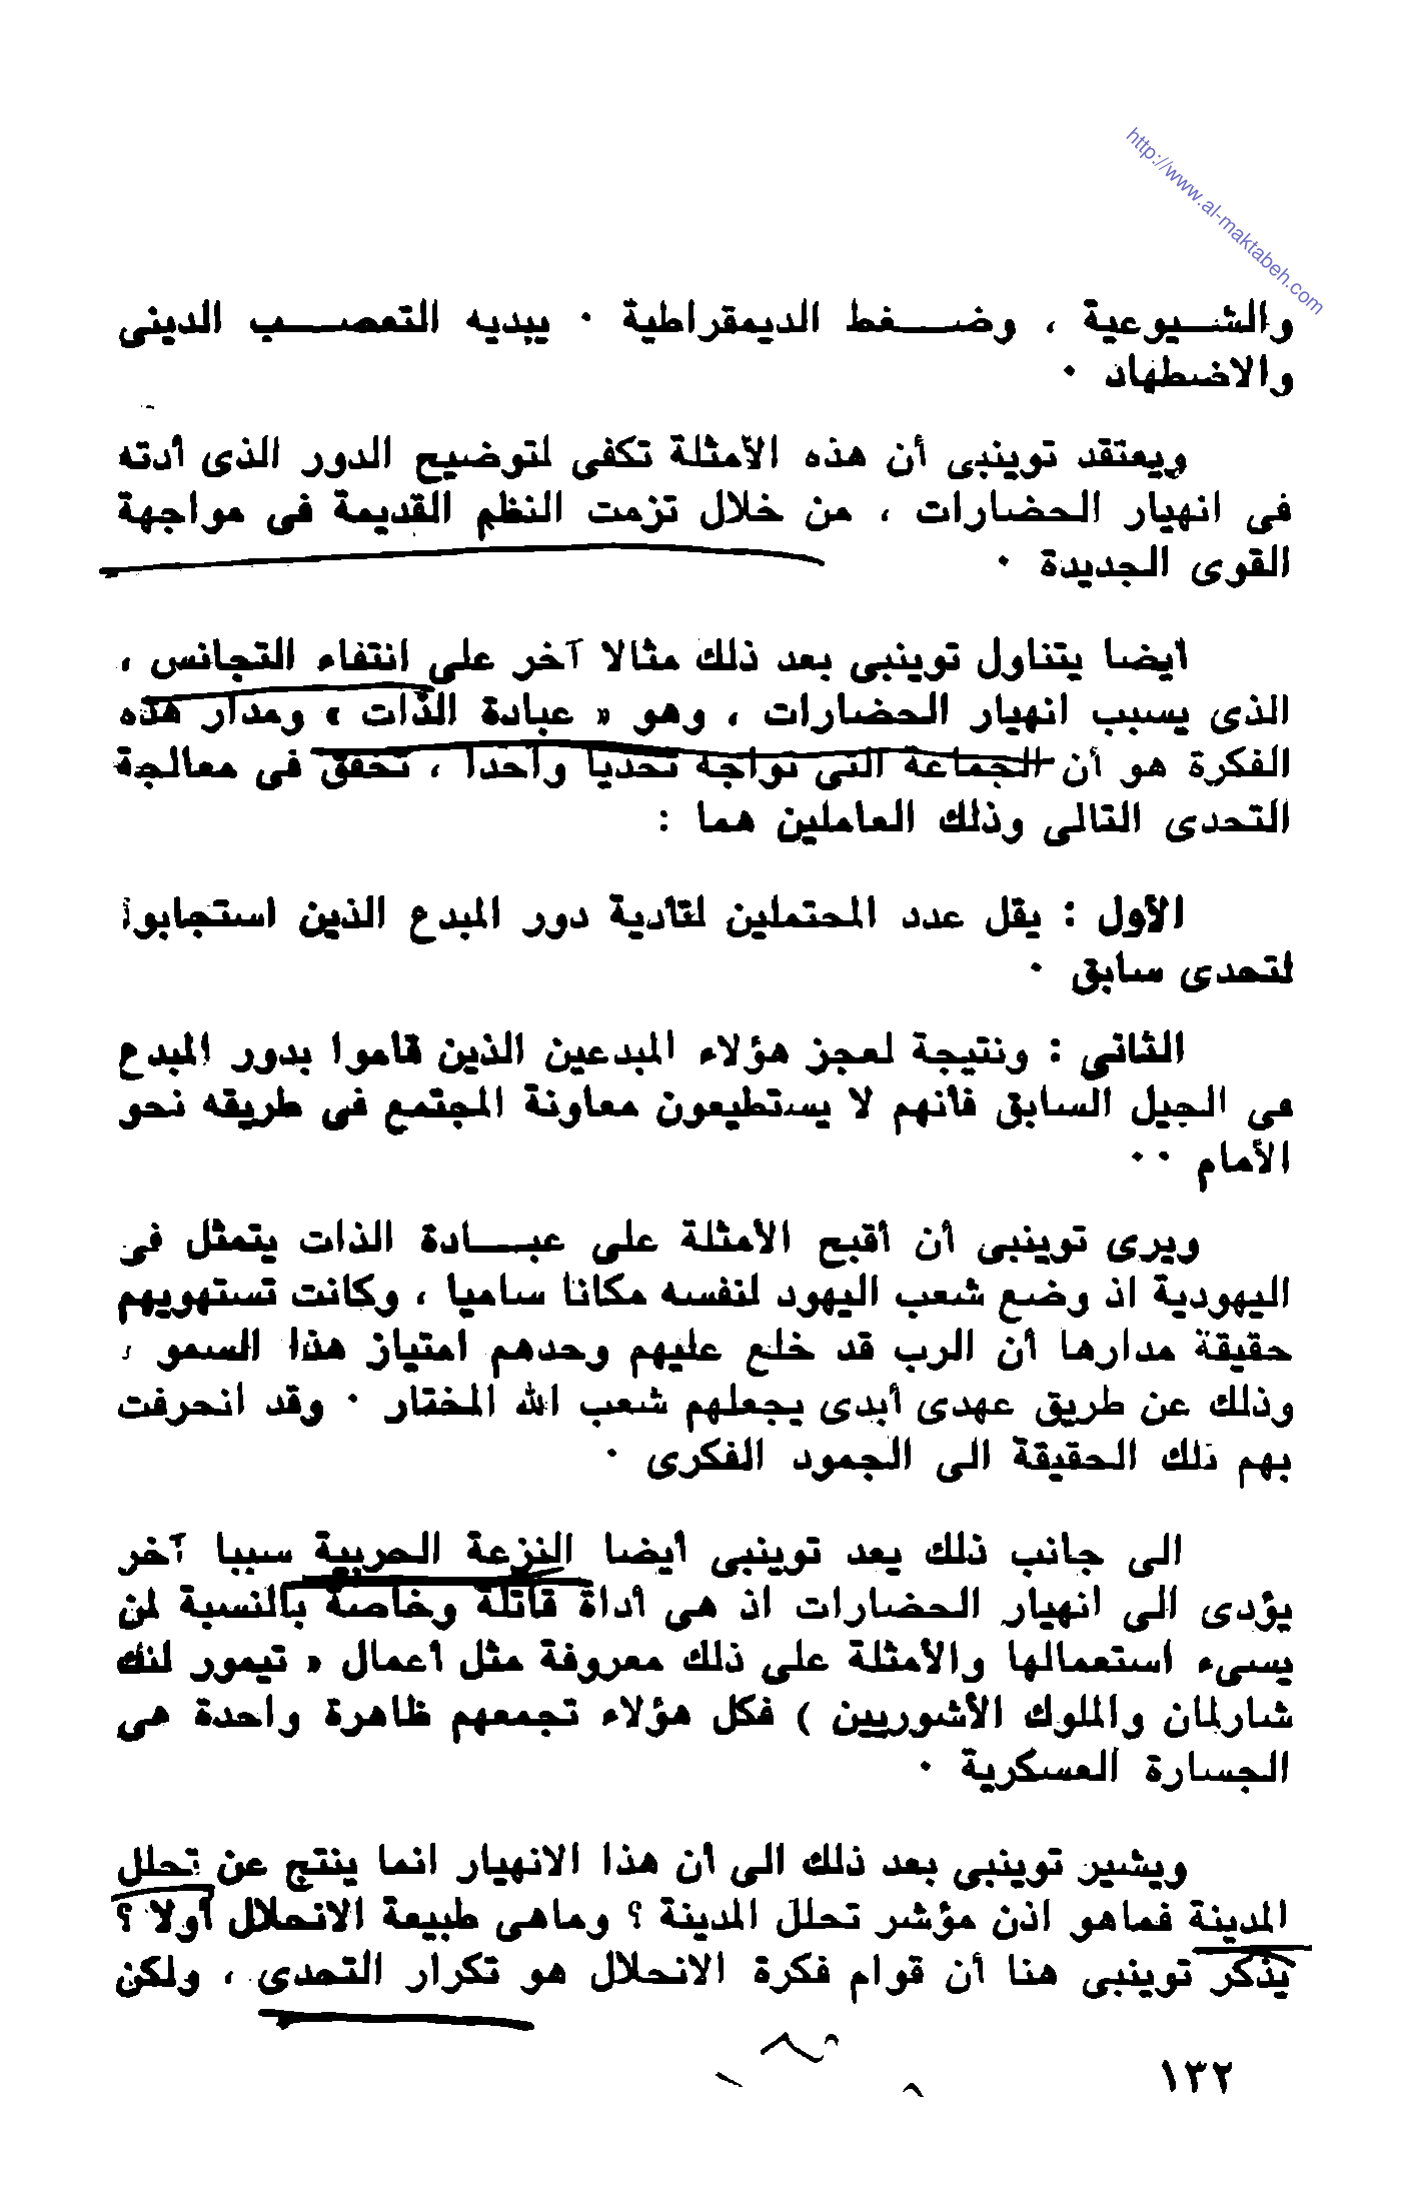 http://www.al-maktabeh.com
والشيوعية ، وضغط الديمقراطية ٠ يبديه التعصب الدينى
والاضطهاد ٠
ويعتقد توينبى أن هذه الأمثلة تكفى لتوضيح الدور الذى أدته
فى انهيار الحضارات ، من خلال تزمت النظم القديمة فى مواجهة
القوى الجديدة ٠
أيضا يتناول توينبى بعد ذلك مثالا آخر على انتفاء التجانس ،
الذى يسبب انهيار الحضارات ، وهو « عبادة الذات » ومدار هذه
الفكرة هو أن الجماعة التى تواجه تحديا واحدا ، تخفق فى معالجة
التحدى التالى وذلك العاملين هما :
الأول : يقل عدد المحتملين لتأدية دور المبدع الذين استجابوا
لتحدى سابق ٠
الثانى : ونتيجة لعجز هؤلاء المبدعين الذين قاموا بدور المبدع
فى الجيل السابق فأنهم لا يستطيعون معاونة المجتمع فى طريقه نحو
الأمام ٠٠
ويرى توينبى أن أقبح الأمثلة على عبادة الذات يتمثل فى
اليهودية اذ وضع شعب اليهود لنفسه مكانا ساميا ، وكانت تستهويهم
حقيقة مدارها أن الرب قد خلع عليهم وحدهم امتياز هذا السمو ،
وذلك عن طريق عهدى أبدى يجعلهم شعب الله المختار ٠ وقد انحرفت
بهم تلك الحقيقة الى الجمود الفكرى ٠
الى جانب ذلك يعد توينبى أيضا النزعة الحربية سببا آخر
يؤدى الى انهيار الحضارات اذ هى أداة قاتلة وخاصة بالنسبة لمن
يسىء استعمالها والأمثلة على ذلك معروفة مثل أعمال « تيمور لنك
شارلمان والملوك الأشوريين ) فكل هؤلاء تجمعهم ظاهرة واحدة هى
الجسارة العسكرية ٠
ويشير توينبى بعد ذلك الى أن هذا الانهيار انما ينتج عن تحلل
المدينة فماهو اذن مؤشر تحلل المدينة ؟ وماهى طبيعة الانحلال أولا ؟
يذكر توينبى هنا أن قوام فكرة الانحلال هو تكرار التحدى ، ولكن
١٣٢